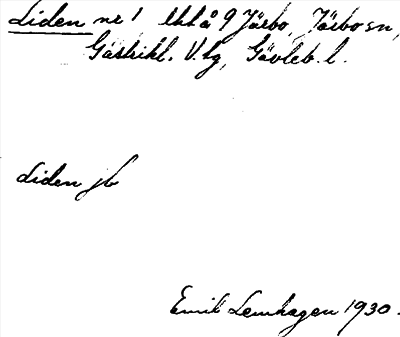 Liden nr 1 lhlå 9 Järbo, Järbo sn,
Gästrikl. V. tg, Gävleb. l.
Liden jb
Emil Lemhagen 1930.